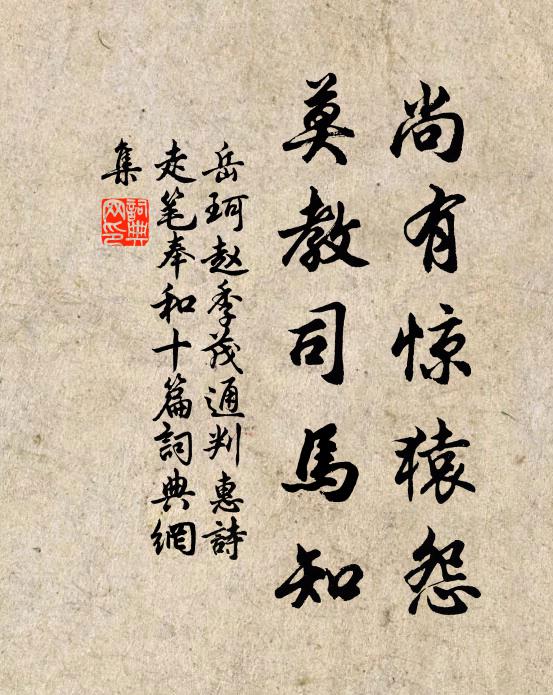 尚有惊猿怨
莫教司馬知
岳珂赵季茂通判惠詩
走笔奉和十篇詞典網
集
詞典网印